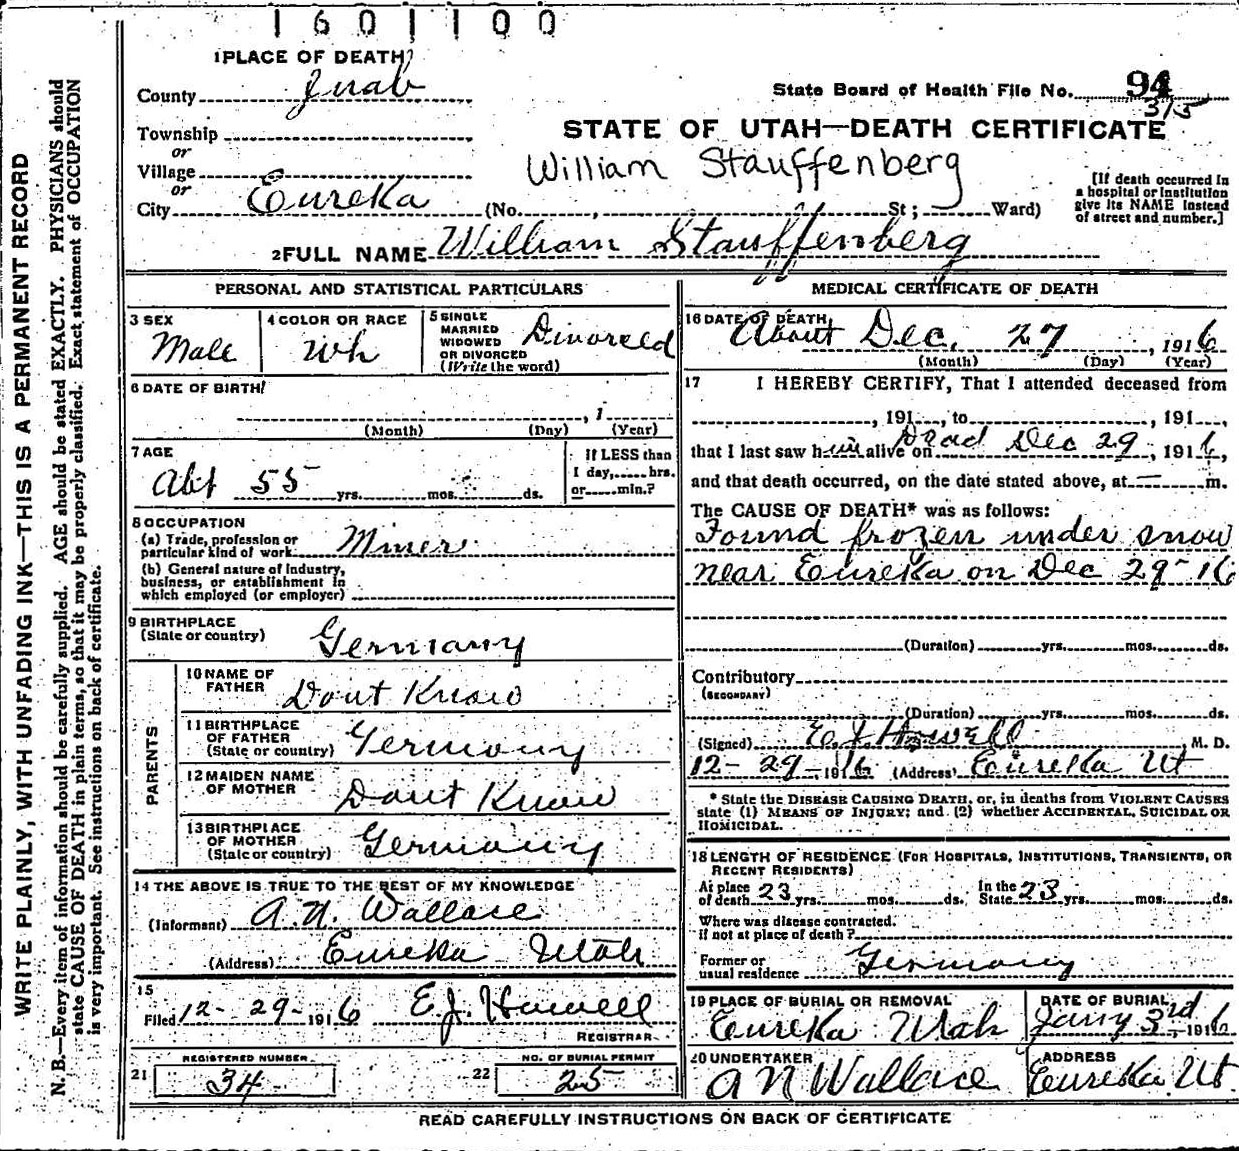 1601100
1 PLACE OF DEATH
County Juab
State Board of Health File No. 94
315
Township
or
Village
or
City Eureka (No. , St ; Ward)
STATE OF UTAH—DEATH CERTIFICATE
William Stauffenberg
[If death occurred in
a hospital or institution
give its NAME instead
of street and number.]
2 FULL NAME William Stauffenberg
PERSONAL AND STATISTICAL PARTICULARS
3 SEX
Male
4 COLOR OR RACE
Wh
5 SINGLE
MARRIED
WIDOWED
OR DIVORCED
(Write the word)
Divorced
6 DATE OF BIRTH
, 1
(Month) (Day) (Year)
7 AGE
Abt 55 yrs. mos. ds.
If LESS than
1 day, hrs.
or min.?
8 OCCUPATION
(a) Trade, profession or
particular kind of work Miner
(b) General nature of industry,
business, or establishment in
which employed (or employer)
9 BIRTHPLACE
(State or country) Germany
PARENTS
10 NAME OF
FATHER Dont Know
11 BIRTHPLACE
OF FATHER
(State or country) Germany
12 MAIDEN NAME
OF MOTHER Dont Know
13 BIRTHPLACE
OF MOTHER
(State or country) Germany
14 THE ABOVE IS TRUE TO THE BEST OF MY KNOWLEDGE
(Informant) A.N. Wallace
(Address) Eureka Utah
15
Filed 12-29-1916 E.J. Howell
REGISTRAR
REGISTERED NUMBER
21 34
NO. OF BURIAL PERMIT
22 25
MEDICAL CERTIFICATE OF DEATH
16 DATE OF DEATH
About Dec. 27, 1916
(Month) (Day) (Year)
17 I HEREBY CERTIFY, That I attended deceased from
, 191 , to , 191 ,
that I last saw him alive on Dead Dec 29, 1916,
and that death occurred, on the date stated above, at — m.
The CAUSE OF DEATH* was as follows:
Found frozen under snow
near Eureka on Dec 29-16
(Duration) yrs. mos. ds.
Contributory
(SECONDARY)
(Duration) yrs. mos. ds.
(Signed) E.J. Howell M. D.
12-29-1916 (Address) Eureka Ut
* State the DISEASE CAUSING DEATH, or, in deaths from VIOLENT CAUSES
state (1) MEANS OF INJURY; and (2) whether ACCIDENTAL, SUICIDAL OR
HOMICIDAL.
18 LENGTH OF RESIDENCE (FOR HOSPITALS, INSTITUTIONS, TRANSIENTS, OR
RECENT RESIDENTS)
At place
of death 23 yrs. mos. ds.
In the
State 23 yrs. mos. ds.
Where was disease contracted.
if not at place of death?
Former or
usual residence Germany
19 PLACE OF BURIAL OR REMOVAL
Eureka Utah
DATE OF BURIAL
Jany 3rd, 1916
20 UNDERTAKER
A N Wallace
ADDRESS
Eureka Ut.
READ CAREFULLY INSTRUCTIONS ON BACK OF CERTIFICATE
WRITE PLAINLY, WITH UNFADING INK—THIS IS A PERMANENT RECORD
N. B.—Every item of information should be carefully supplied. AGE should be stated EXACTLY. PHYSICIANS should
state CAUSE OF DEATH in plain terms, so that it may be properly classified. Exact statement of OCCUPATION
is very important. See instructions on back of certificate.